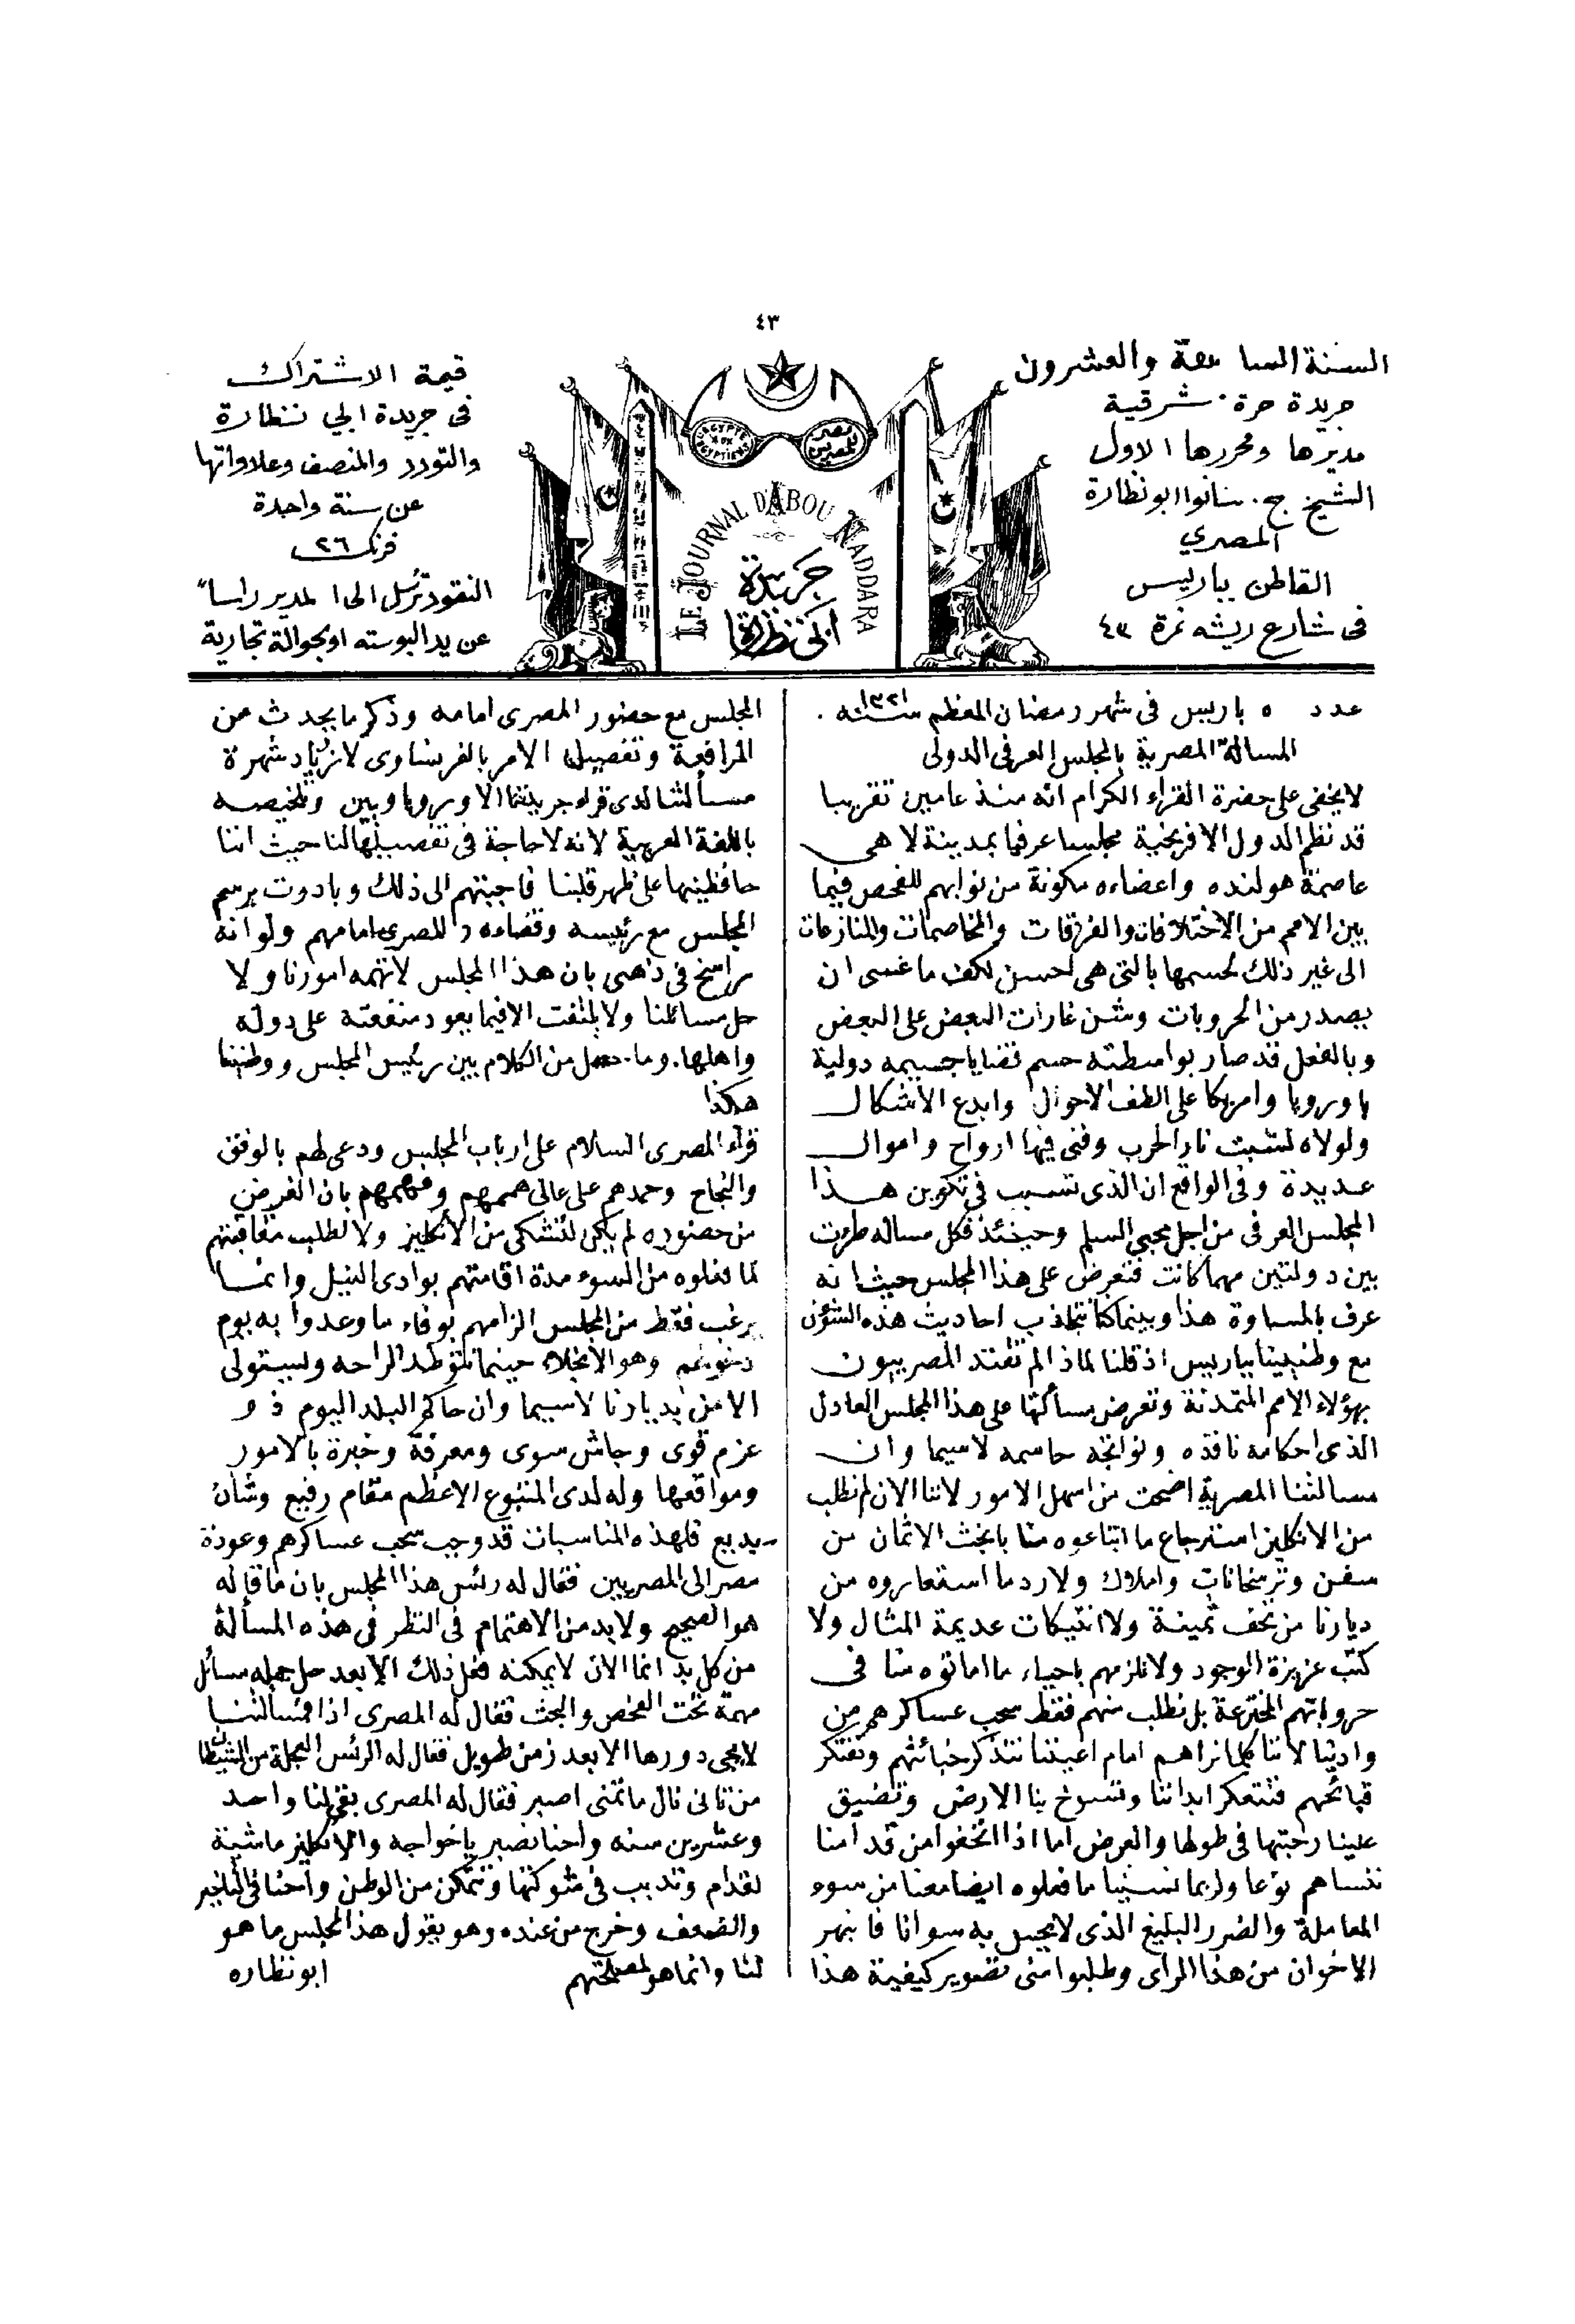 ٤٣
السنة السابعة والعشرون
جريدة حرة شرقية
مديرها ومحررها الاول
الشيخ ج. سانوا ابو نظارة
المصري
القاطن بباريس
فى شارع ريشه نمرة ٤٣
L'EGYPTE AUX EGYPTIENS
مصر للمصريين
LE JOURNAL D'ABOU NADDARA
جريدة
ابى نظارة
قيمة الاشتراك
فى جريدة ابي نظارة
والتودد والمنصف وعلاواتها
عن سنة واحدة
فرنك ٢٦
النقود ترسل الى المدير راسا
عن يد البوسته او بحوالة تجارية
عدد ٥ باريس فى شهر رمضان المعظم سنة ١٣٢١
المسالة المصرية بالمجلس العرفى الدولى
لا يخفى على حضرة القراء الكرام انه منذ عامين تقريبا
قد نظم الدول الافرنجية مجلسا عرفيا بمدينة لاهى
عاصمة هولنده واعضاءه مكونة من نوابهم للفحص فيما
بين الامم من الاختلافات والفرقات والمخاصمات والمنازعات
الى غير ذلك لحسمها بالتى هى احسن لكف ما عسى ان
يصدر من الحروبات وشن غارات البعض على البعض
وبالفعل قد صار بواسطته حسم قضايا جسيمه دولية
باوروبا وامريكا على الطف الاحوال وابدع الاشكال
ولولاه لشبت نار الحرب وفنى فيها ارواح واموال
عديدة وفى الواقع ان الذى تسبب فى تكوين هذا
المجلس العرفى من اجل محبي السلم وحينئذ فكل مساله طرءت
بين دولتين مهما كانت فتعرض على هذا المجلس حيث انه
عرف بالمساوة هذا وبينما كنا نتجاذب احاديث هذه الشؤن
مع وطنيينا بباريس اذ قلنا لماذا لم تقتد المصريون
بهؤلاء الامم المتمدنة وتعرض مسألتها على هذا المجلس العادل
الذى احكامه نافذه ونواتجه حاسمه لاسيما وان
مسالتنا المصرية اضحت من اسهل الامور لاننا الان لم نطلب
من الانكليز استرجاع ما ابتاعوه منا بابخث الاثمان من
سفن وترسخانات واملاك ولا رد ما استعاروه من
ديارنا من تحف ثمينة ولا انتيكات عديمة المثال ولا
كتب عزيزة الوجود ولا نلزمهم باحياء ما اماتوه منا فى
حروباتهم المخترعة بل نطلب منهم فقط سحب عساكرهم من
وادينا لاننا كلما نراهم امام اعيننا نتذكر خبائثهم ونفتكر
قبائحهم فتتعكر ابداننا وتسوخ بنا الارض وتضيق
علينا رحبتها فى طولها والعرض اما اذا اتخفوا من قدامنا
ننساهم نوعا ولربما نسينا ما فعلوه ايضا معنا من سوء
المعاملة والضرر البليغ الذى لا يحس به سوانا فانبهر
الاخوان من هذا الراى وطلبوا منى تصوير كيفية هذا
المجلس مع حضور المصرى امامه وذكر ما يحدث من
المرافعة وتفصيل الامر بالفرنساوى لازياد شهرة
مسألتنا لدى قراء جريدتنا الاوروباويين وتلخيصه
باللغة العربية لانه لا حاجة فى تفصيلها لنا حيث اننا
حافظينها على ظهر قلبنا فاجبتهم الى ذلك وبادرت برسم
المجلس مع رئيسه وقضاءه والمصرى امامهم ولو انه
راسخ فى ذهنى بان هذا المجلس لا تهمه امورنا ولا
حل مسائلنا ولا يلتفت الا فيما يعود منفعته على دوله
واهلها. وما حصل من الكلام بين رئيس المجلس ووطنينا
هكذا
قراء المصرى السلام على ارباب المجلس ودعى لهم بالوفق
والنجاح وحمدهم على عالى هممهم وفهمهم بان الغرض
من حضوره لم يكن للتشكى من الانكليز ولا لطلب معاقبتهم
لما فعلوه من السوء مدة اقامتهم بوادى النيل وانما
يرغب فقط من المجلس الزامهم بوفاء ما وعدوا به يوم
دخولهم وهو الانجلاء حينما تتوطد الراحه ويستولى
الامن بديارنا لاسيما وان حاكم البلد اليوم ذو
عزم قوى وجاش سوى ومعرفة وخبرة بالامور
ومواقعها وله لدى المتبوع الاعظم مقام رفيع وشان
بديع فلهذه المناسبات قد وجب سحب عساكرهم وعودة
مصر الى المصريين فقال له رئس هذا المجلس بان ما قاله
هو الصحيح ولا بد من الاهتمام فى النظر فى هذه المسألة
من كل بد انما الان لا يمكنه فعل ذلك الا بعد حل جمله مسائل
مهمة تحت الفحص والبحث فقال له المصرى اذا مسألتنا
لا يجى دورها الا بعد زمن طويل فقال له الرئس العجلة من الشيطان
من تانى نال ما تمنى اصبر فقال له المصرى بقى لنا واحد
وعشرين سنه واحنا نصبر يا خواجه والانكليز ماشية
لقدام وتدبب فى شوكتها وتتمكن من الوطن واحنا فى التاخير
والضعف وخرج من عنده وهو يقول هذا المجلس ما هو
لنا وانما هو لمصلحتهم
ابو نظاره